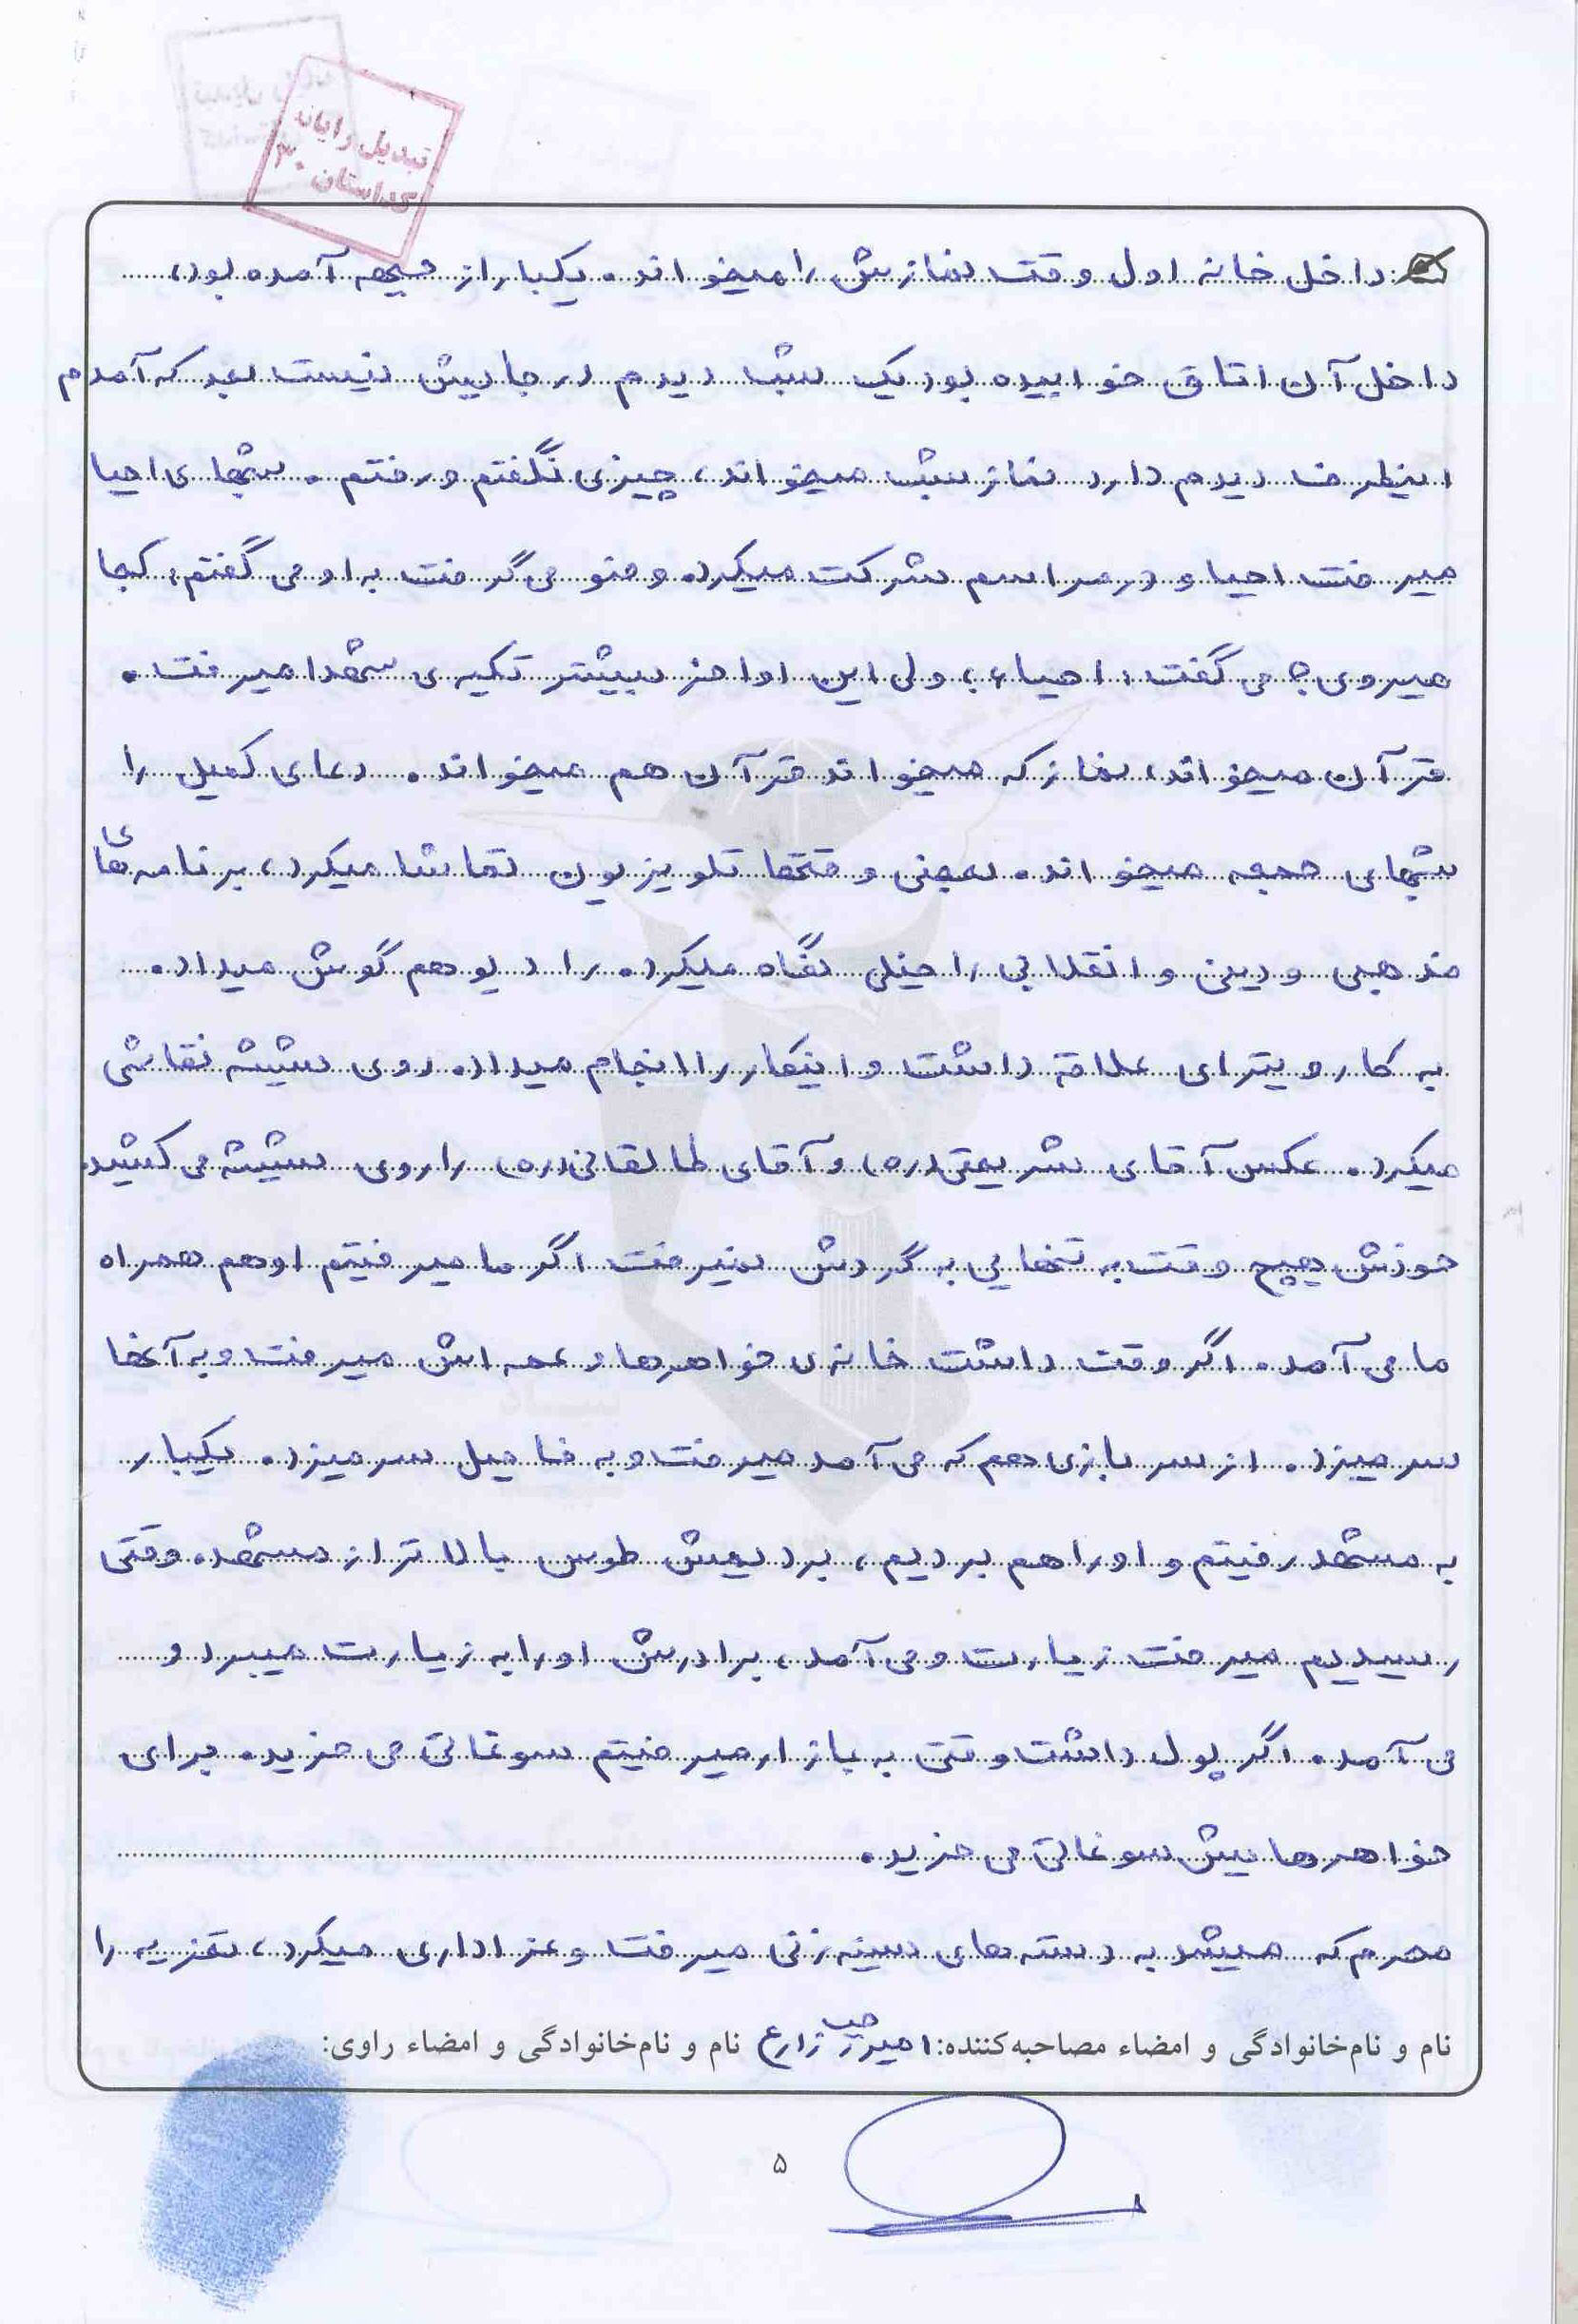 تبدیل رایانه
کداستان ۳۰
داخل خانه اول وقت نمازش را میخواند. یکبار از جبهه آمده بود،
داخل آن اتاق خوابیده بود یک شب دیدم در جایش نیست بعد که آمدم
اینطرف دیدم دارد نماز شب میخواند، چیزی نگفتم و رفتم. شبهای احیا
میرفت احیا و در مراسم شرکت میکرد. وضو می‌گرفت به او می گفتم: کجا
میروی؟ می گفت: احیاء؛ ولی این اواخر بیشتر تکیه‌ی شهدا میرفت.
قرآن میخواند، نماز که میخواند قرآن هم میخواند. دعای کمیل را
شبهای جمعه میخواند. بعضی وقتها تلویزیون تماشا میکرد، برنامه‌های
مذهبی و دینی و انقلابی را خیلی نگاه میکرد. رادیو هم گوش میداد.
به کار ویترای علاقه داشت و اینکار را انجام میداد. روی شیشه نقاشی
میکرد. عکس آقای شریعتی(ره) و آقای طالقانی(ره) را روی شیشه می کشید.
خودش هیچ وقت به تنهایی به گردش نمیرفت اگر ما میرفتیم او هم همراه
ما می آمد. اگر وقت داشت خانه‌ی خواهرها و عمه اش میرفت و به آنها
سر میزد. از سربازی هم که می آمد میرفت و به فامیل سر میزد. یکبار
به مشهد رفتیم و او را هم بردیم، بردیمش طوس بالاتر از مشهد. وقتی
رسیدیم میرفت زیارت و می آمد، برادرش او را به زیارت میبرد و
می آمد. اگر پول داشت وقتی به بازار میرفتیم سوغاتی می خرید. برای
خواهرهایش سوغاتی می خرید.
محرم که میشد به دسته‌های سینه زنی میرفت و عزاداری میکرد، تعزیه را
نام و نام‌خانوادگی و امضاء مصاحبه‌کننده: زارع نام و نام‌خانوادگی و امضاء راوی:
۵